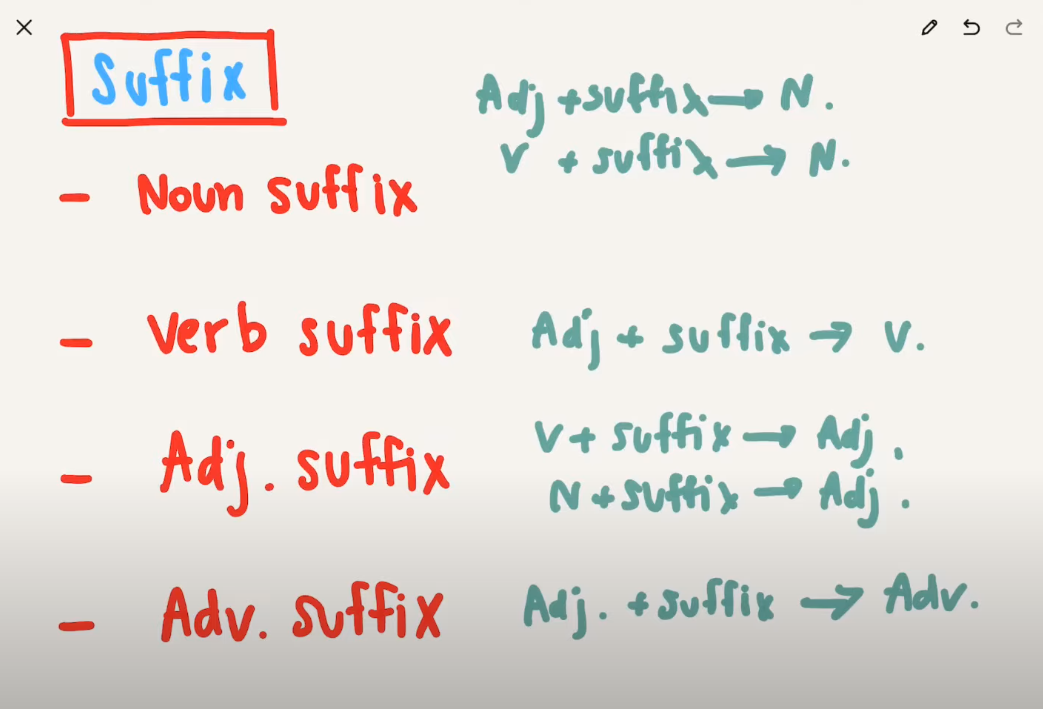 Suffix
Adj + suffix → N.
V + suffix → N.
- Noun suffix
- Verb suffix
Adj + suffix → V.
- Adj. suffix
V + suffix → Adj.
N + suffix → Adj.
- Adv. suffix
Adj. + suffix → Adv.